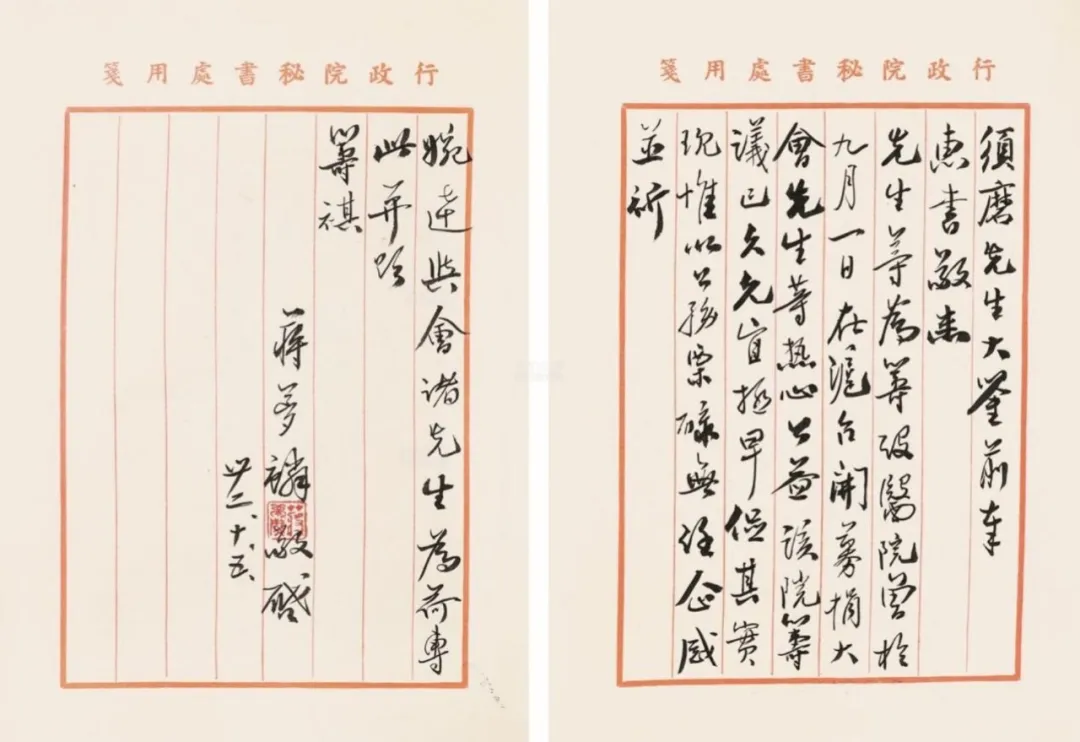 行政院秘書處用箋
須磨先生大鑒前奉
惠書敬悉
先生等為籌設醫院曾於
九月一日在滬召開募捐大
會先生等熱心公益該院籌
議已久允宜極早促其實
現惟以公務栗碌無任企感
並祈
行政院秘書處用箋
婉達與會諸先生為荷專
此并頌
籌祺
蔣夢麟敬啟
卅二、十、五、